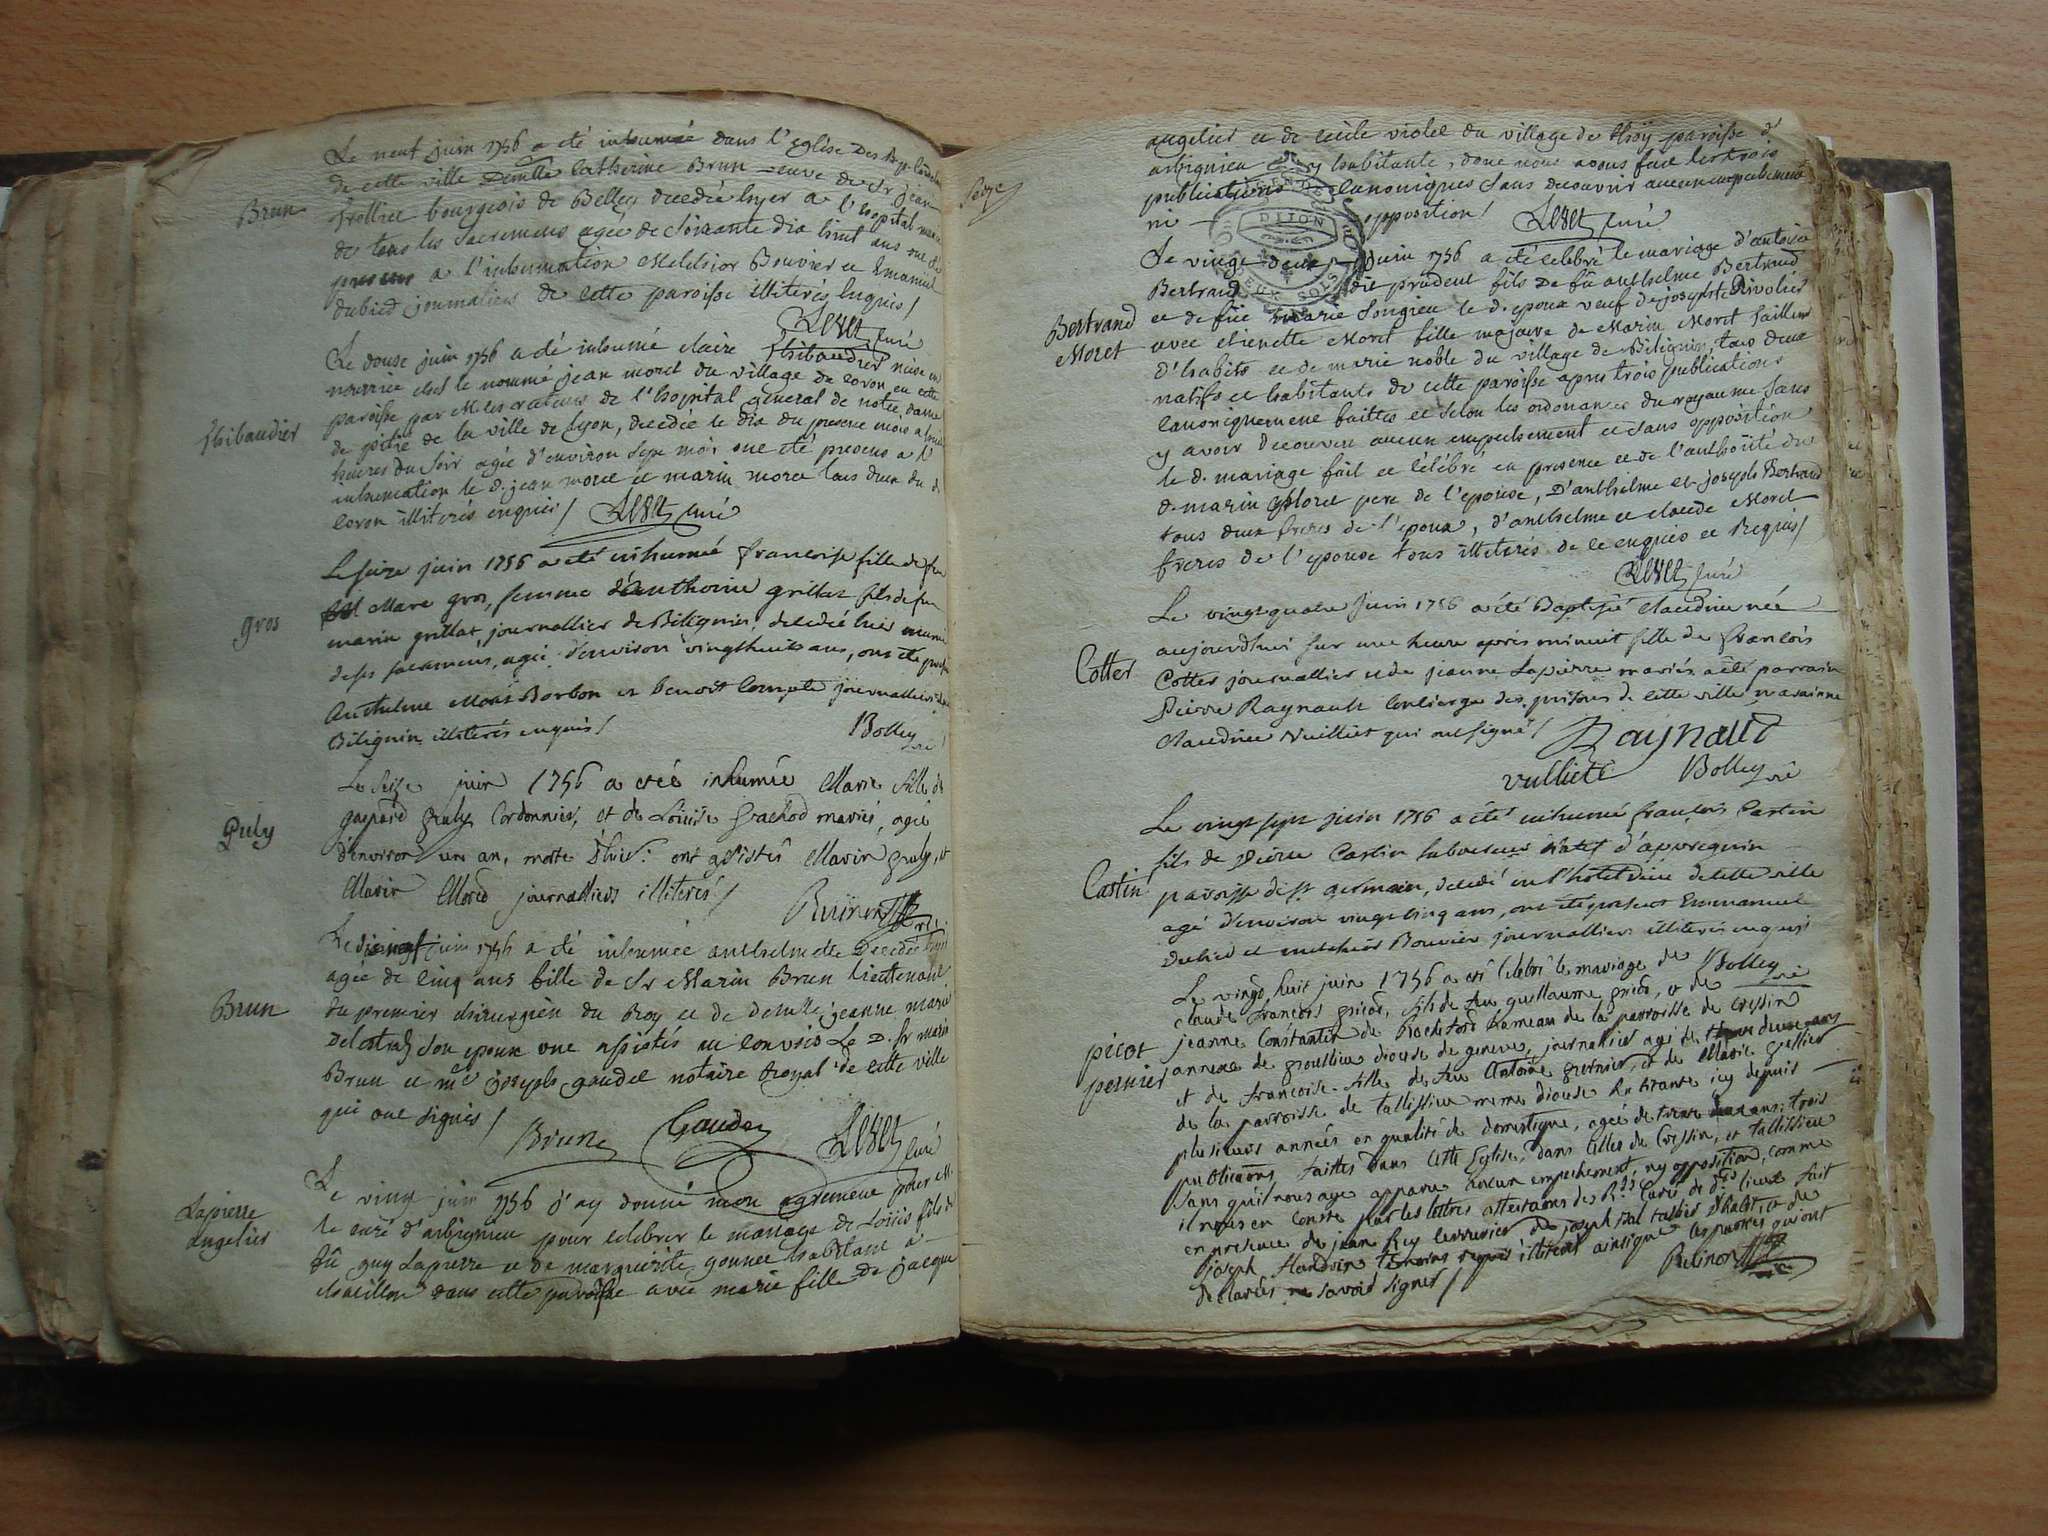 Le neuf juin 1756 a été inhumée dans l'Eglise Des Rp.
de cette ville Demlle Catherine Brun veuve de Sr jean
Brun
bourgeois de Belley decedée hyer a l'hopital
de tous les sacremens agée de soixante dix huit ans ont été
presens a l'inhumation Melchior Bouvier et Emanuel
dubied journaliers de cette paroisse illiterés enquis /
curé
Le douse juin 1756 a été inhumé claire thibaudier mise en
nourrice chés le nommé jean moret du village de coron en cette
paroisse par M. les recteurs de l'hopital general de notre dame
Thibaudier
de pitié de la ville de Lyon, decedée le dix du present mois a
heures du soir agée d'environ sept mois ont été presens a l'
inhumation le d. jean moret et marin moret tous deux du d.
coron illiterés enquis / curé
Le seize juin 1756 a été inhumée francoise fille de feu
Marc gros, femme d'Anthoine grillat fils de feu
gros
marin grillat, journallier de Bilignin, decedée hier munie
de ses sacremens, agée d'environ vingthuit ans, ont été
Anthelme Borbon et benoit journalliers de
Bilignin illiterés enquis /
Bolley
Le seize juin 1756 a eté inhumée Marie fille de
Puly
gaspard puly Cordonnier, et de Louise mariés, agée
d'environ un an, morte d'hier. ont assistés Marin puly, et
Marin Moret journalliers illiterés /
Le juin 1756 a été inhumée anthelmette Decedée hyer
agée de cinq ans fille de Sr Marin Brun lieutenant
Brun
du premier chirurgien du Roy et de demlle jeanne marie
son epoux ont assistés au convois Le D. Sr marin
Brun et me joseph gaudet notaire Royal de cette ville
qui ont signés /
Brun Gaudet curé
Le vingt juin 1756 j'ay donné mon agrement pour M.
Lapierre
Angelier
le curé d'arbignieu pour celebrer le mariage de Loüis fils de
fû guy Lapierre et de marguerite gonnet habitant a
chatillon dans cette paroisse avec marie fille de jacque
angelier et de cecile violet du village de paroisse d'
arbignieu y habitante, dont nous avons fait les trois
publications canoniques sans decouvrir aucun empechement
ni opposition / curé
DIJON
DEUX SOLS
Le vingt deux juin 1756 a été celebré le mariage d'antoine
Bertrand dit prudent fils de fû anthelme Bertrand
et de füe marie Songieu le d. epoux veuf de josephte Rivolier
Bertrand
Moret
avec etienette Moret fille majeure de Marin Moret tailleur
d'habits et de marie noble du village de Bilignin, tous deux
natifs et habitants de cette paroisse apres trois publications
canoniquement faittes et selon les ordonances du royaume sans
y avoir decouvert aucun empechement et sans opposition
le d. mariage fait et célébré en presence et de l'authoïté du
d. marin Moret pere de l'epouse, D'anthelme et joseph Bertrand
tous deux freres de l'epoux, d'anthelme et claude Moret
freres de l'epouse tous illiterés de ce enquies et Requis /
curé
Le vingtquatre juin 1756 a été Baptisée claudine née
aujourdhui sur une heure après minuit fille de françois
Cotter
Cotter journallier et de jeanne Lapierre mariés, a été parrain
Pierre Raynault concierge des prisons de cette ville, maraine
claudine Vulliet qui ont signé / Raynault
vulliete Bolley
Le vingt sept juin 1756 a été inhumé françois Castin
fils de pierre Castin laboureur natif
Castin
paroisse de st germain, decedé en l'hotel dieu de cette ville
agé d'environ vingt cinq ans, ont été present Emmanuel
dubied et melchior Bouvier journalliers illiterés enquis
Bolley
Le vingt huit juin 1756 a eté celebré le mariage de
claude françois picot, fils de feu guillaume picot, et de
jeanne Constantin de Rochefort hameau de la parroisse de Cressin
picot
pernier
annexe de diocese de geneve, journallier agé de deux ans
et de francoise fille de feu Antoine pernier, et de Marie
de la parroisse de tallissieu meme diocese habitante icy depuis
plusieurs années en qualité de domestique, agée de trente ans; trois
publications faittes dans cette Eglise, dans celles de Cressin, et tallissieu
sans qu'il nous aye apparu aucun empechement, ny opposition, comme
il nous en conste par les lettres attestatoires des Rds Curés de ds lieux fait
en presence de jean Rey serrurier de joseph d'habit, et de
joseph temoins requis illiterés ainsi que les parties qui ont
declarés ne savoir signer /